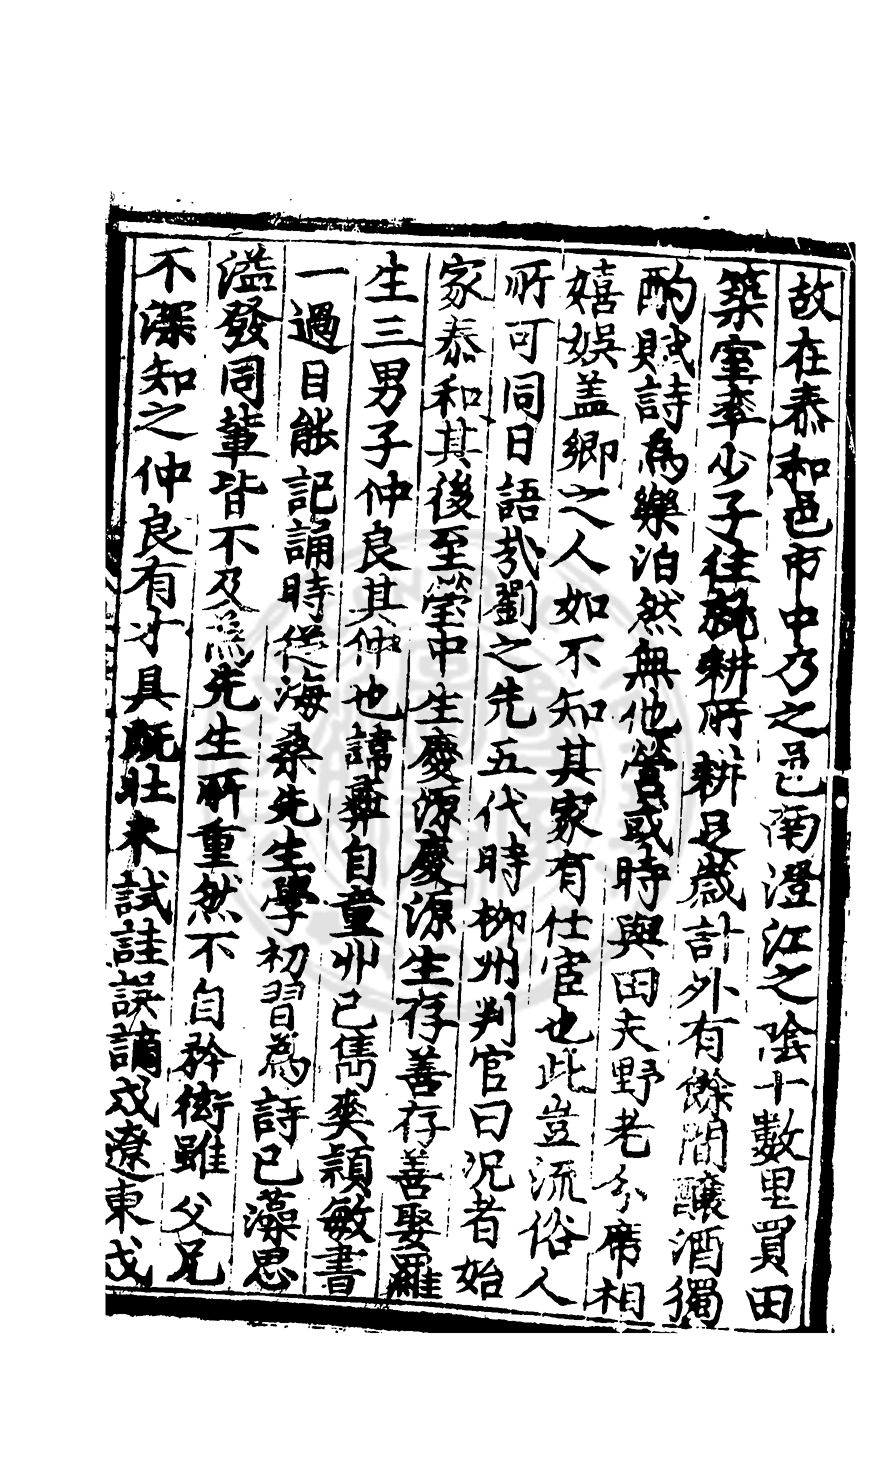 故在泰和邑市中乃之邑南澄江之陰十數里買田
築室率少子徃就耕所耕足歲計外有餘閒釀酒獨
酌賦詩為樂泊然無他營或時與田夫野老分席相
嬉娛盖鄉之人如不知其家有仕宦也此豈流俗人
所可同日語㢤劉之先五代時栁州判官曰况者始
家泰和其後至瑩中生慶源慶源生存善存善娶羅
生三男子仲良其仲也諱彛自童丱已雋爽頴敏書
一過目能記誦時從海桑先生學初習為詩已藻思
溢發同輩皆不及為先生所重然不自矜衒雖父兄
不深知之仲良有才具既壯未試詿誤謫戍遼東戍